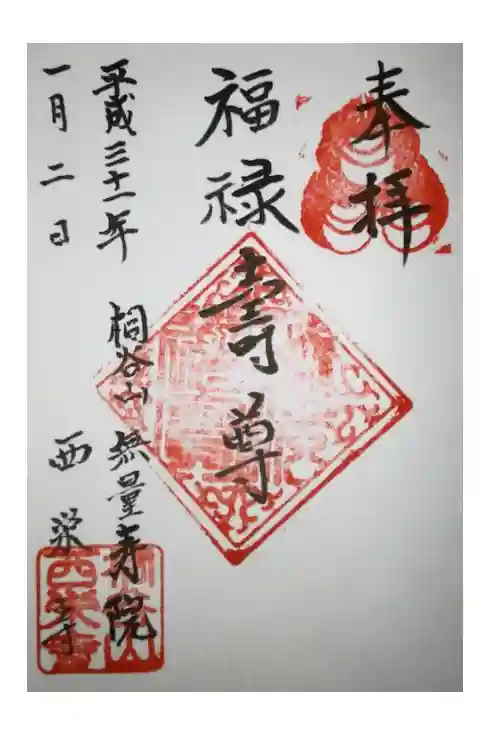 奉拝
福禄壽尊
平成三十一年
一月二日
桐谷山無量寿院
西栄寺